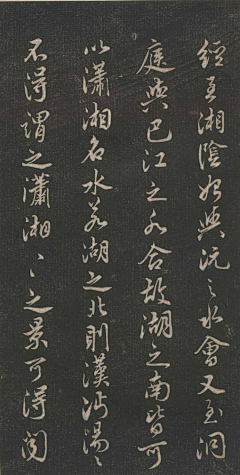 經至湘陰始與沅之水會又至洞
庭與巴江之水合故湖之南皆可
以瀟湘名水若湖之北則漢沔湯湯
不得謂之瀟湘瀟湘之景可得聞